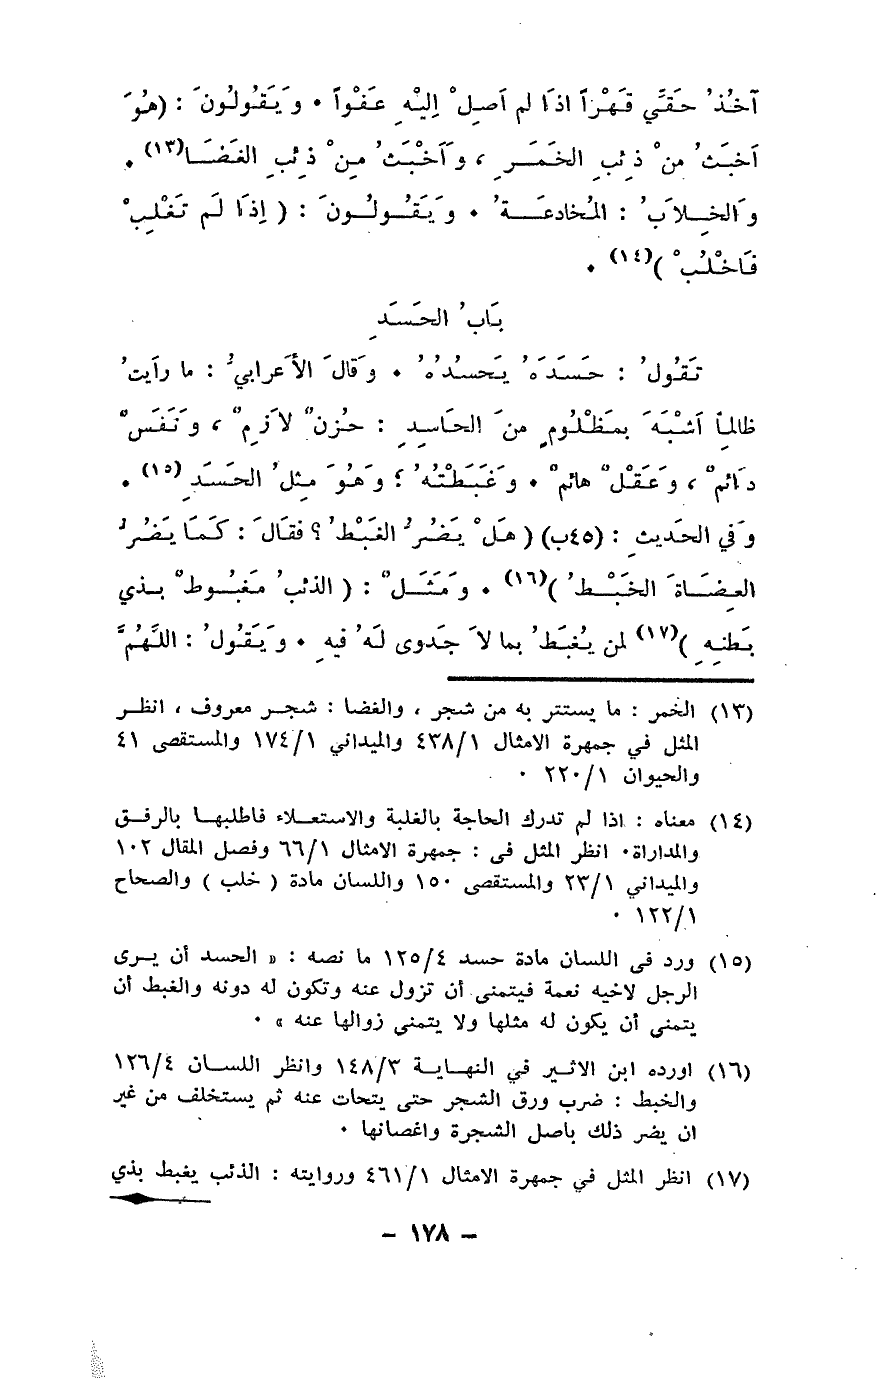 آخُذُ حَقِّي قَهْراً اذَا لم أَصِلْ إِلَيْهِ عَفْواً ٠ وَيَقُولُونَ : (هُوَ
أَخْبَثُ مِنْ ذِئْبِ الخَمَرِ ، وَأَخْبَثُ مِنْ ذِئْبِ الغَضَا(١٣) ٠
وَالخِلاَبُ : المُخَادَعَةُ ٠ وَيَقُولُونَ : ( إِذَا لَم تَغْلِبْ
فَاخْلُبْ )(١٤) ٠
بَابُ الحَسَدِ
تَقُولُ : حَسَدَهُ يَحسُدُهُ ٠ وَقَالَ الأَعرابيُّ : ما رأَيتُ
ظالماً أَشْبَهَ بمَظْلُومٍ مِنَ الحَاسِدِ : حُزنٌ لاَزمٌ ، وَنَفَسٌ
دَائمٌ ، وَعَقْلٌ هائمٌ ٠ وَغَبَطْتُهُ ؛ وَهُوَ مِثلُ الحَسَدِ(١٥) ٠
وَفي الحَديثِ : (٤٥ب) ( هَلْ يَضُرُّ الغَبْطُ ؟ فقَالَ : كَمَا يَضُرُّ
العِضَاةَ الخَبْطُ )(١٦) ٠ وَمَثَلٌ : ( الذئبُ مَغبُوطٌ بذي
بَطنِهِ )(١٧) لمن يُغبَطُ بما لاَ جَدوى لَهُ فيهِ ٠ وَيَقُولُ : اللَّهُمَّ
(١٣) الخمر : ما يستتر به من شجر ، والغضا : شجر معروف ، انظر
المثل في جمهرة الامثال ٤٣٨/١ والميداني ١٧٤/١ والمستقصى ٤١
والحيوان ٢٢٠/١ ٠
(١٤) معناه : اذا لم تدرك الحاجة بالغلبة والاستعلاء فاطلبها بالرفق
والمداراة٠ انظر المثل فى : جمهرة الامثال ٦٦/١ وفصل المقال ١٠٢
والميداني ٢٣/١ والمستقصى ١٥٠ واللسان مادة ( خلب ) والصحاح
١٢٢/١ ٠
(١٥) ورد فى اللسان مادة حسد ١٢٥/٤ ما نصه : « الحسد أن يرى
الرجل لاخيه نعمة فيتمنى أن تزول عنه وتكون له دونه والغبط أن
يتمنى أن يكون له مثلها ولا يتمنى زوالها عنه » ٠
(١٦) اورده ابن الاثير في النهاية ١٤٨/٣ وانظر اللسان ١٢٦/٤
والخبط : ضرب ورق الشجر حتى يتحات عنه ثم يستخلف من غير
ان يضر ذلك باصل الشجرة واغصانها ٠
(١٧) انظر المثل في جمهرة الامثال ٤٦١/١ وروايته : الذئب يغبط بذي
– ١٧٨ –